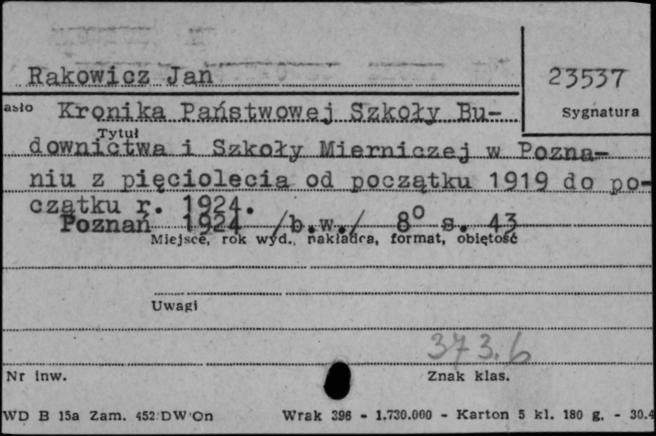 Rakowicz Jan
23537
asło Kronika Państwowej Szkoły Bu-
Sygnatura
Tytuł
downictwa i Szkoły Mierniczej w Pozna-
niu z pięciolecia od początku 1919 do po-
czątku r. 1924.
Poznań 1924 /b.w./ 8° s. 43
Miejsce, rok wyd., nakładca, format, objętość
Uwagi
373.6
Nr inw.
Znak klas.
WD B 15a Zam. 452 DW On Wrak 396 - 1.730.000 - Karton 5 kl. 180 g. - 30.4